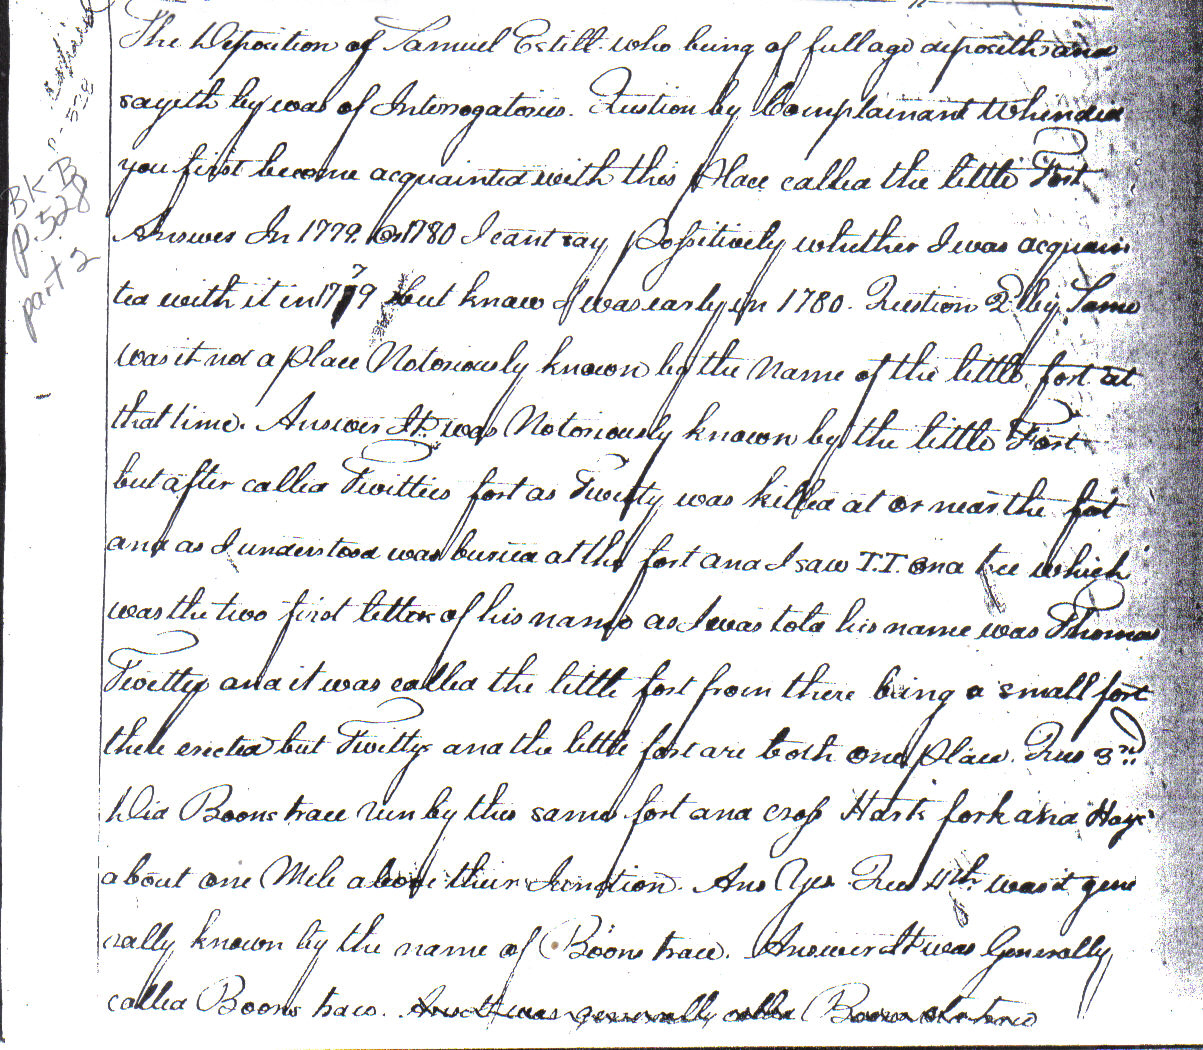 The Deposition of Samuel Estill who being of full age deposeth and
sayeth by way of Interrogatories. Question by Complainant When did
you first become acquainted with this Place called the little Fort
Answer In 1779 or 1780 I cant say Possitively whether I was acquain
ted with it in 1779 but know I was early in 1780. Question 2d by Same
was it not a place Notoriously known by the Name of the little fort at
that time. Answer It was Notoriously known by the little Fort
but after called Twitties fort as Twitty was killed at or near the fort
and as I understood was buried at the fort and I saw T.T. on a tree which
was the two first letters of his name as I was told his name was Thomas
Twitty and it was called the little fort from there being a small fort
there erected but Twittys and the little fort are both one place. Ques 3rd
Did Boons trace run by this same fort and cross Harts fork and Hays
about one Mile above their Junction. Ans Yes. Ques 4th was it gene
rally known by the name of Boons trace. Answer It was Generally
called Boons trace. Ans It was generally called Boons trace
BK B
P. 528
part 2
P - 528